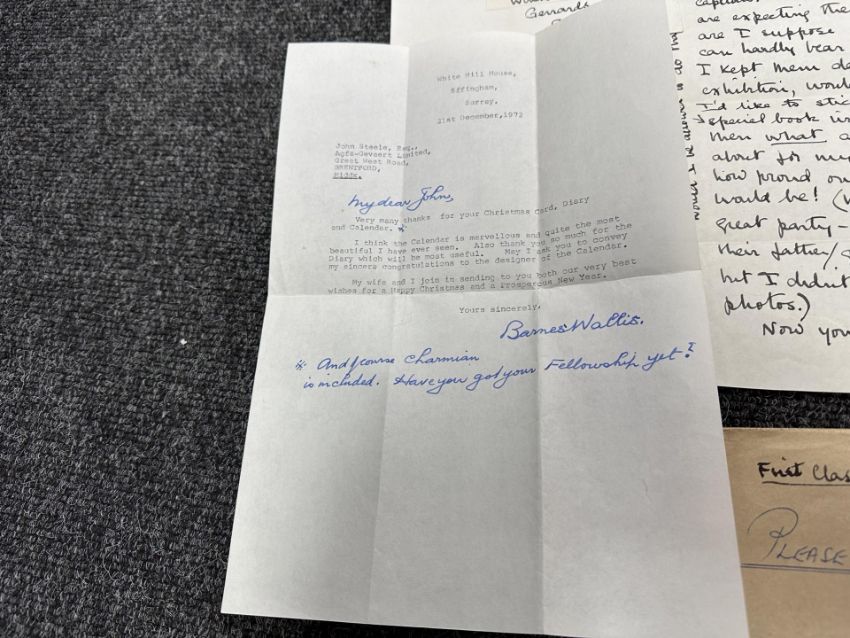 White Hill House,
Effingham,
Surrey.
21st December, 1972
John Steele, Esq.,
Agfa-Gevaert Limited,
Great West Road,
BRENTFORD,
Middx.
My dear John,
Very many thanks for your Christmas card, Diary
and Calendar. *
I think the Calendar is marvellous and quite the most
beautiful I have ever seen. Also thank you so much for the
Diary which will be most useful. May I ask you to convey
my sincere congratulations to the designer of the Calendar.
My wife and I join in sending to you both our very best
wishes for a Happy Christmas and a Prosperous New Year.
Yours sincerely,
Barnes Wallis.
* And of course Charmian
is included. Have you got your Fellowship yet?
Gerrards
are expecting the
are I suppose
can hardly bear
I kept them
exhibition, would
I'd like to
special book
men what a
about for my
how proud
would be!
great party -
their father/
but I didn't
photos.)
Now you
First Clas
PLEASE